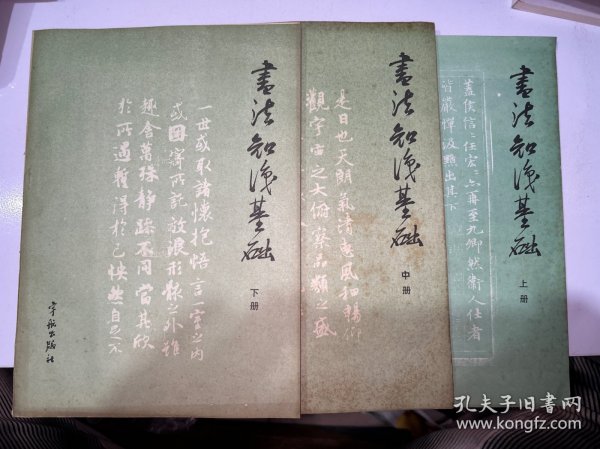 書法知識基础
下册
一世或取諸懷抱悟言一室之内
或因寄所託放浪形骸之外雖
趣舍萬殊静躁不同當其欣
於所遇暫得於己快然自足不
宇航出版社
書法知識基础
中册
是日也天朗氣清惠風和暢仰
觀宇宙之大俯察品類之盛
書法知識基础
上册
蓋侯信〻任宏〻亦再至九卿然衛人仕者
皆嚴憚汲黯出其下
孔夫子旧书网
www.kongfz.com